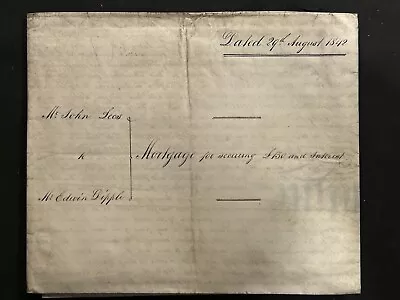 Dated 29th August 1842
Mr John Lees
to
Mr Edwin Dipple
Mortgage for securing £150 and Interest